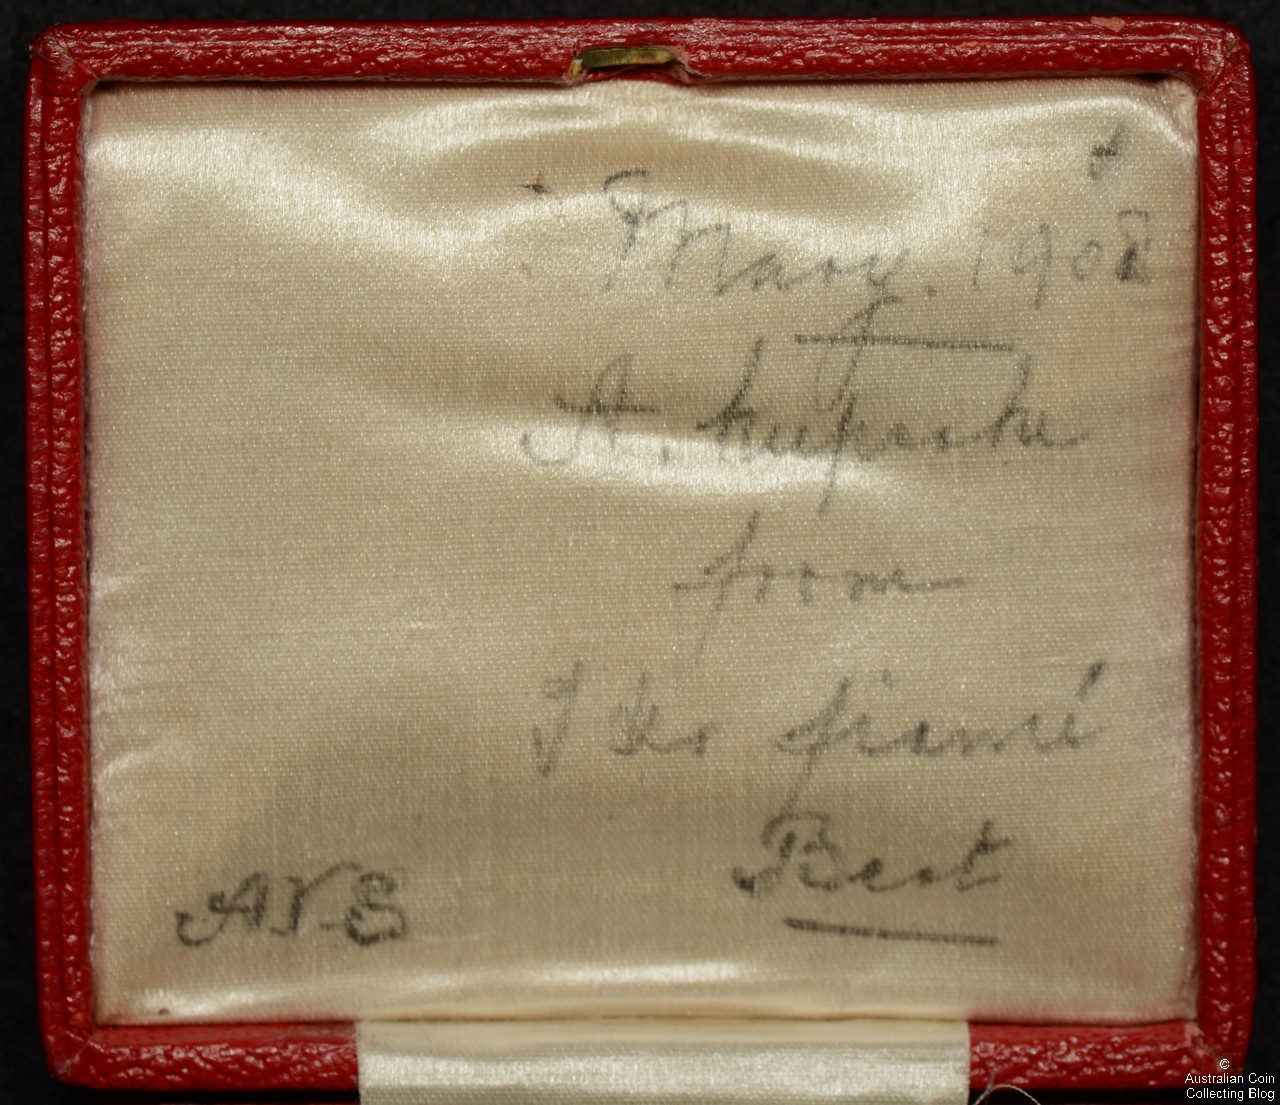 May. 1902
A. keepsake
from
fiancé
Bert
A.V.E
©
Australian Coin
Collecting Blog